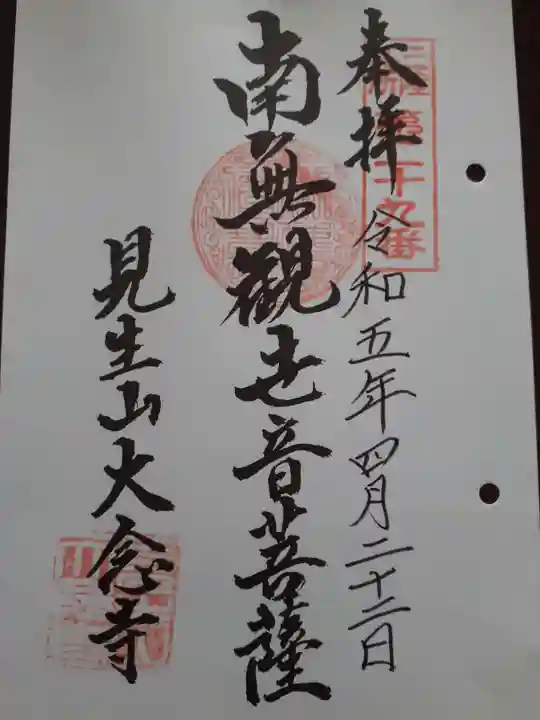 奉拝 令和五年四月二十二日
三陸 第二十九番
南無觀世音菩薩
見生山大念寺